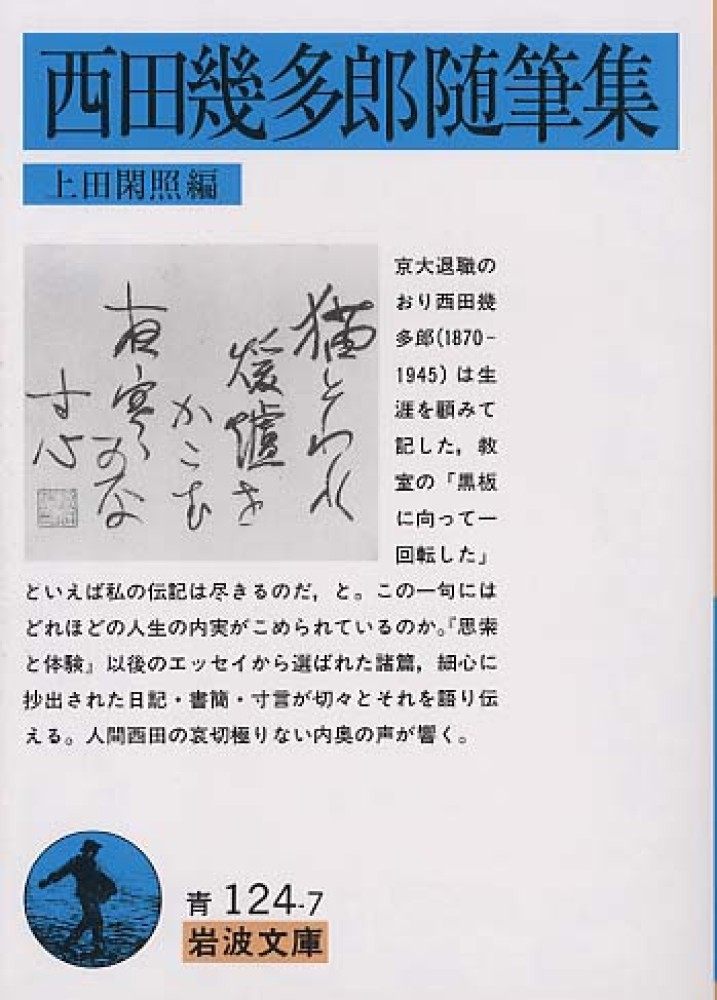 西田幾多郎随筆集
上田閑照編
猫とわれ
煖爐を
かこむ
夜寒
かな
寸心
京大退職の
おり西田幾
多郎(1870-
1945)は生
涯を顧みて
記した，教
室の「黒板
に向って一
回転した」
といえば私の伝記は尽きるのだ，と。この一句には
どれほどの人生の内実がこめられているのか。『思索
と体験』以後のエッセイから選ばれた諸篇，細心に
抄出された日記・書簡・寸言が切々とそれを語り伝
える。人間西田の哀切極りない内奥の声が響く。
青 124-7
岩波文庫